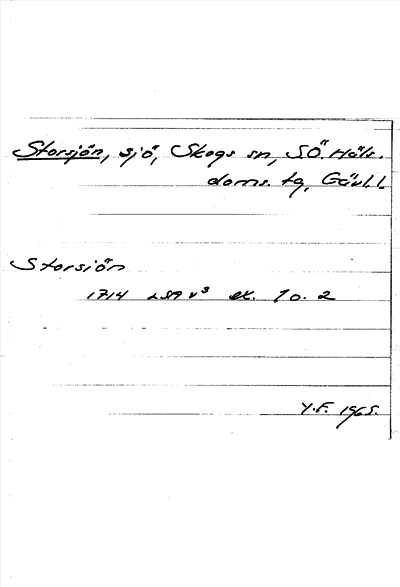 Storsjön, sjö, Skogs sn, S.Ö. Häls.
doms. tg, Gävl. l.
Storsiön
1714 LSA V³ ek. 1 o. 2
Y.F. 1965.